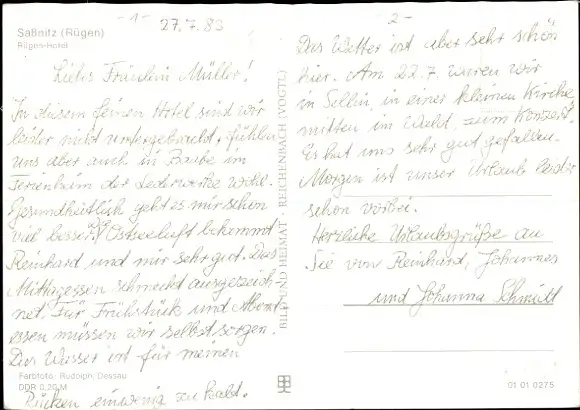 -1-
27.7.83
Saßnitz (Rügen)
Rügen-Hotel
Liebes Fräulein Müller!
In diesem feinen Hotel sind wir
leider nicht untergebracht, fühlen
uns aber auch in Baabe im
Ferienheim der Lederwerke wohl.
Gesundheitlich geht es mir schon
viel besser. Ostseeluft bekommt
Reinhard und mir sehr gut. Das
Mittagessen schmeckt ausgezeich-
net. Für Frühstück und Abend-
essen müssen wir selbst sorgen.
Das Wasser ist für meinen
Farbfoto: Rudolph, Dessau
DDR 0,20 M
Rücken ein wenig zu kalt.
BILD UND HEIMAT · REICHENBACH (VOGTL)
2-
Das Wetter ist aber sehr schön
hier. Am 22.7. waren wir
in Sellin, in einer kleinen Kirche
mitten im Wald, zum Konzert.
Es hat uns sehr gut gefallen.
Morgen ist unser Urlaub leider
schon vorbei.
Herzliche Urlaubsgrüße an
Sie von Reinhard, Johannes
und Johanna Schmidt
01 01 0275